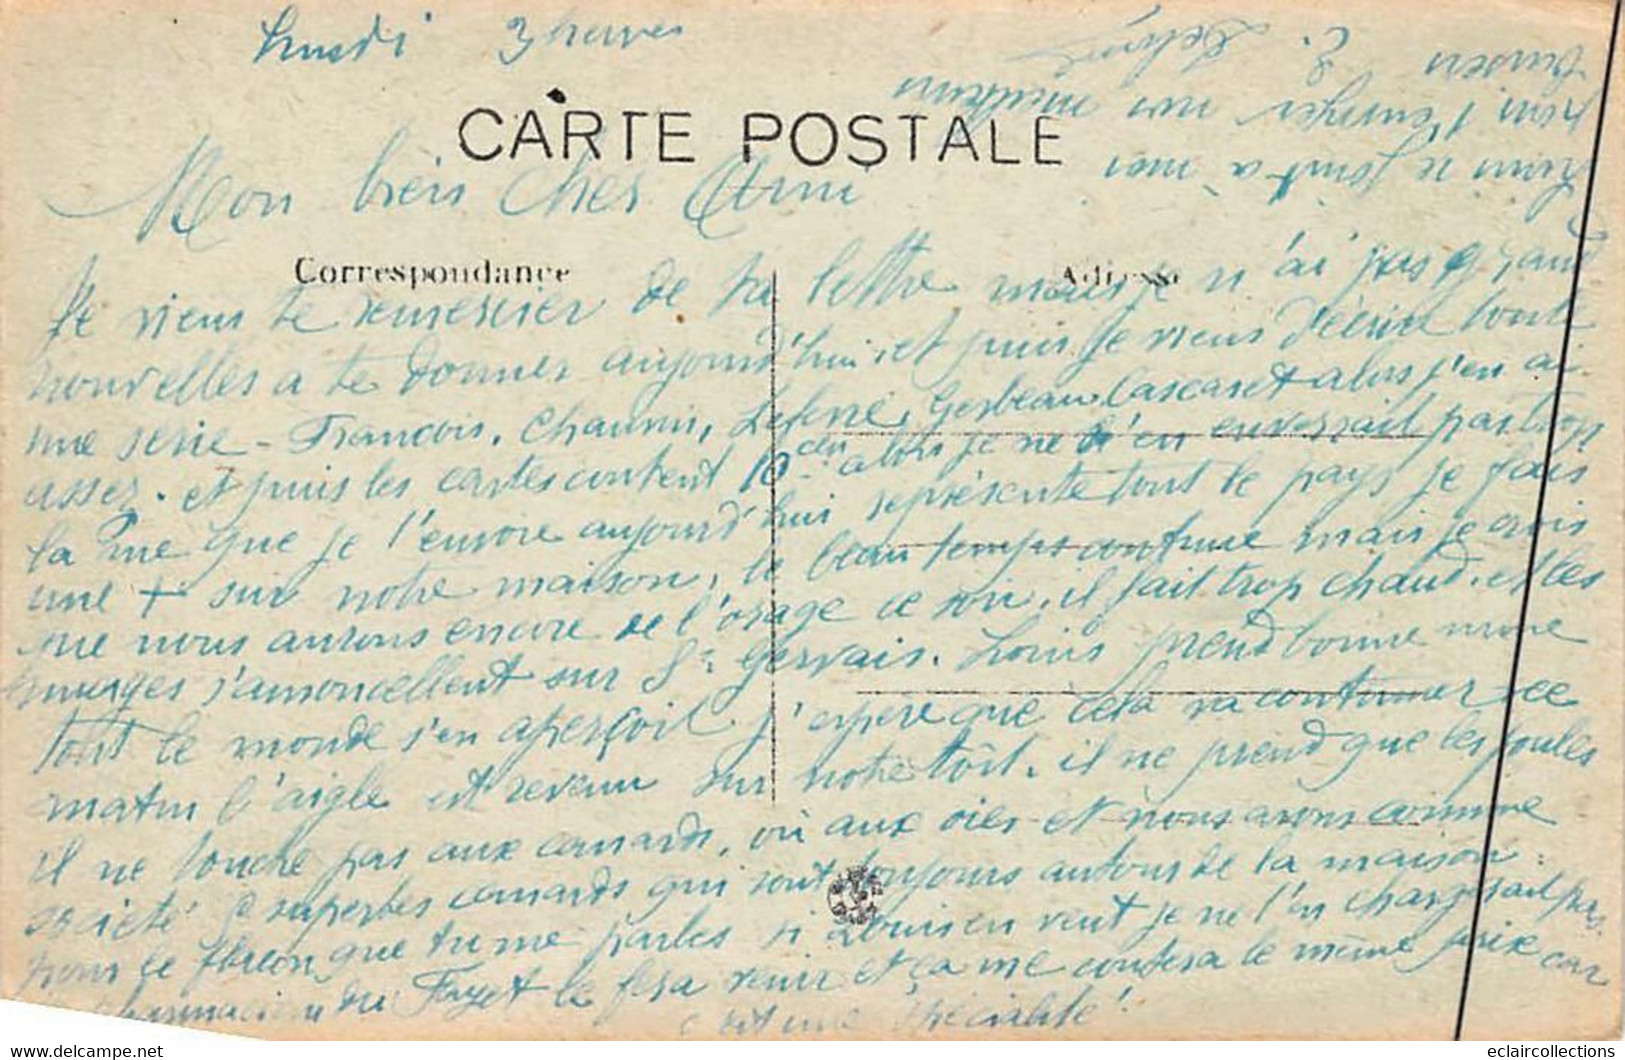 Lundi 3 heures
CARTE POSTALE
Mon bien cher Ami
Correspondance
Adresse
Je viens te remercier de ta lettre mais je n'ai pas grand
nouvelles a te donner aujourd'hui. et puis je viens d'écrire toute
une serie - François. Chauvin, Lefevre, Gerbeau Cascaret alors j'en ai
assez. et puis les cartes coutent 10 cen alors je ne t'en enverrait pas trop
la vue que je t'envoie aujourd'hui représente tout le pays je fais
une + sur notre maison, le beau temps continue mais je crois
que nous aurons encore de l'orage ce soir. il fait trop chaud. et les
nuages s'amoncellent sur St Gervais. Louis prend bonne mine
tout le monde s'en aperçoit. j'espere que cela va continuer. ce
matin l'aigle est revenu sur notre toit. il ne prend que les poules
il ne touche pas aux canards, ou aux oies et nous avons comme
societé 2 superbes canards qui sont toujours autour de la maison.
pour le flacon que tu me parles si Louis en veut je ne l'en chargerait pas.
le pharmacien du Fayet le fera venir et ça me coutera le même prix car
c'est une spécialité!
Louis se joint a moi
pour t'envoyer nos meilleurs
baisers
eclaircollections.com
eclaircollections